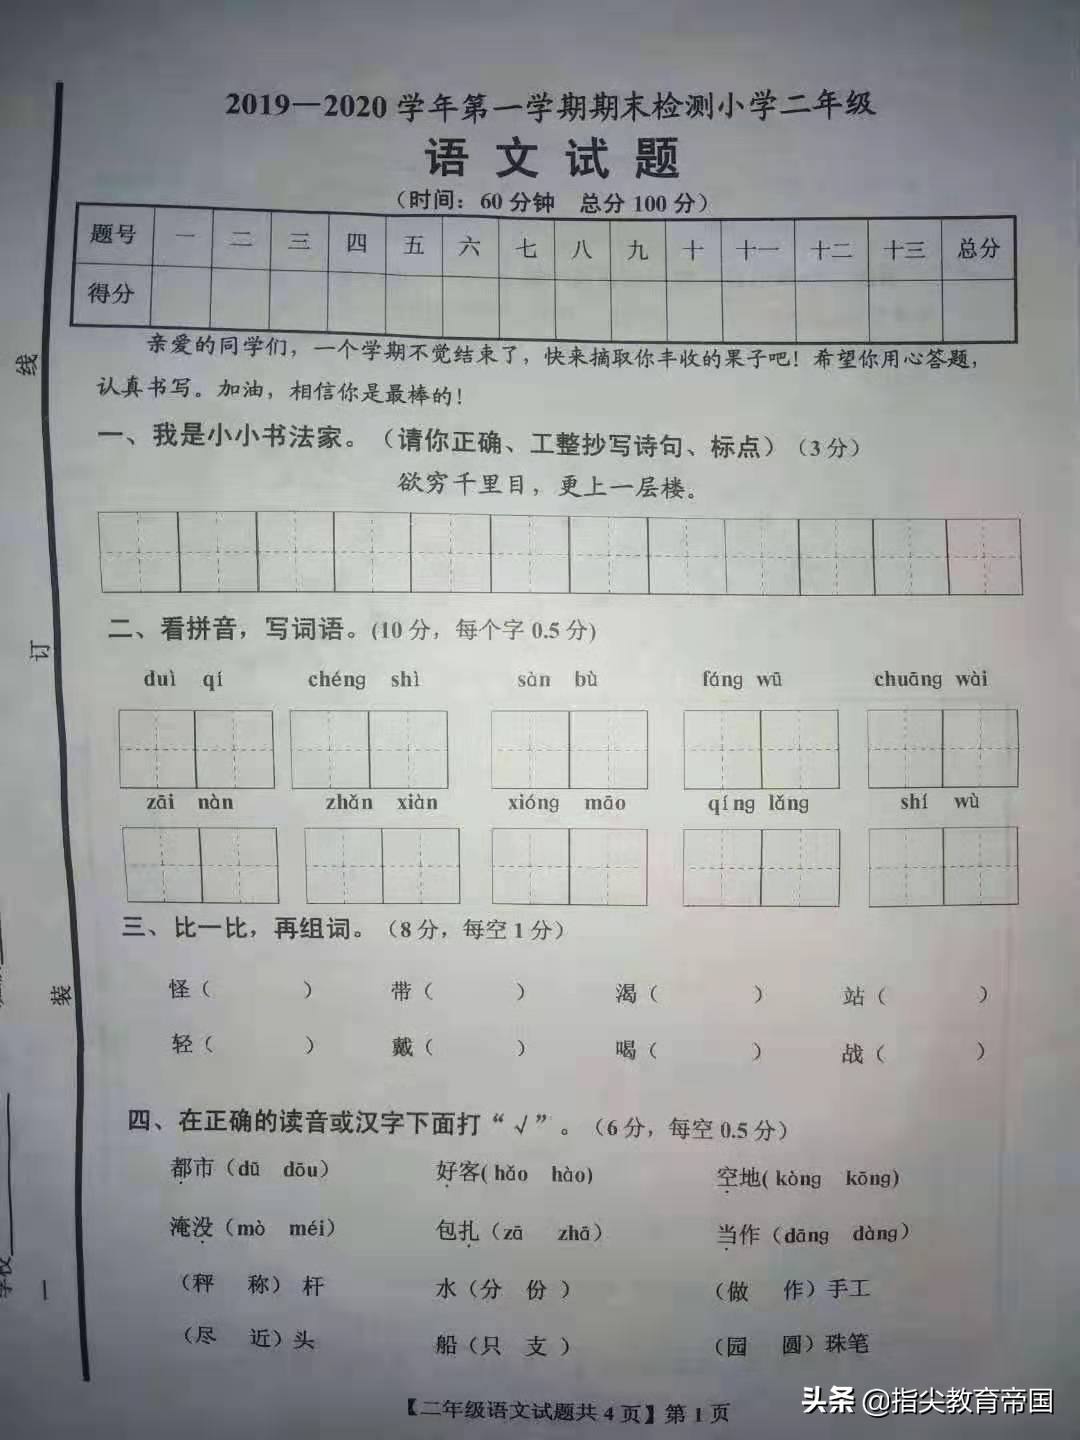 2019—2020 学年第一学期期末检测小学二年级
语文试题
（时间：60 分钟 总分 100 分）
题号 一 二 三 四 五 六 七 八 九 十 十一 十二 十三 总分
得分
亲爱的同学们，一个学期不觉结束了，快来摘取你丰收的果子吧！希望你用心答题，
认真书写。加油，相信你是最棒的！
一、我是小小书法家。（请你正确、工整抄写诗句、标点）（3 分）
欲穷千里目，更上一层楼。
二、看拼音，写词语。(10 分，每个字 0.5 分)
duì qí chéng shì sàn bù fáng wū chuāng wài
zāi nàn zhǎn xiàn xióng māo qíng lǎng shí wù
三、比一比，再组词。（8 分，每空 1 分）
怪（ ） 带（ ） 渴（ ） 站（ ）
轻（ ） 戴（ ） 喝（ ） 战（ ）
四、在正确的读音或汉字下面打“√”。（6 分，每空 0.5 分）
都市（dū dōu） 好客( hǎo hào) 空地( kòng kōng)
淹没（mò méi） 包扎（zā zhā） 当作（dāng dàng）
（秤 称）杆 水（分 份 ） （做 作）手工
（尽 近）头 船（只 支 ） （园 圆）珠笔
【二年级语文试题共 4 页】第 1 页
线
订
装
学校
头条 @指尖教育帝国